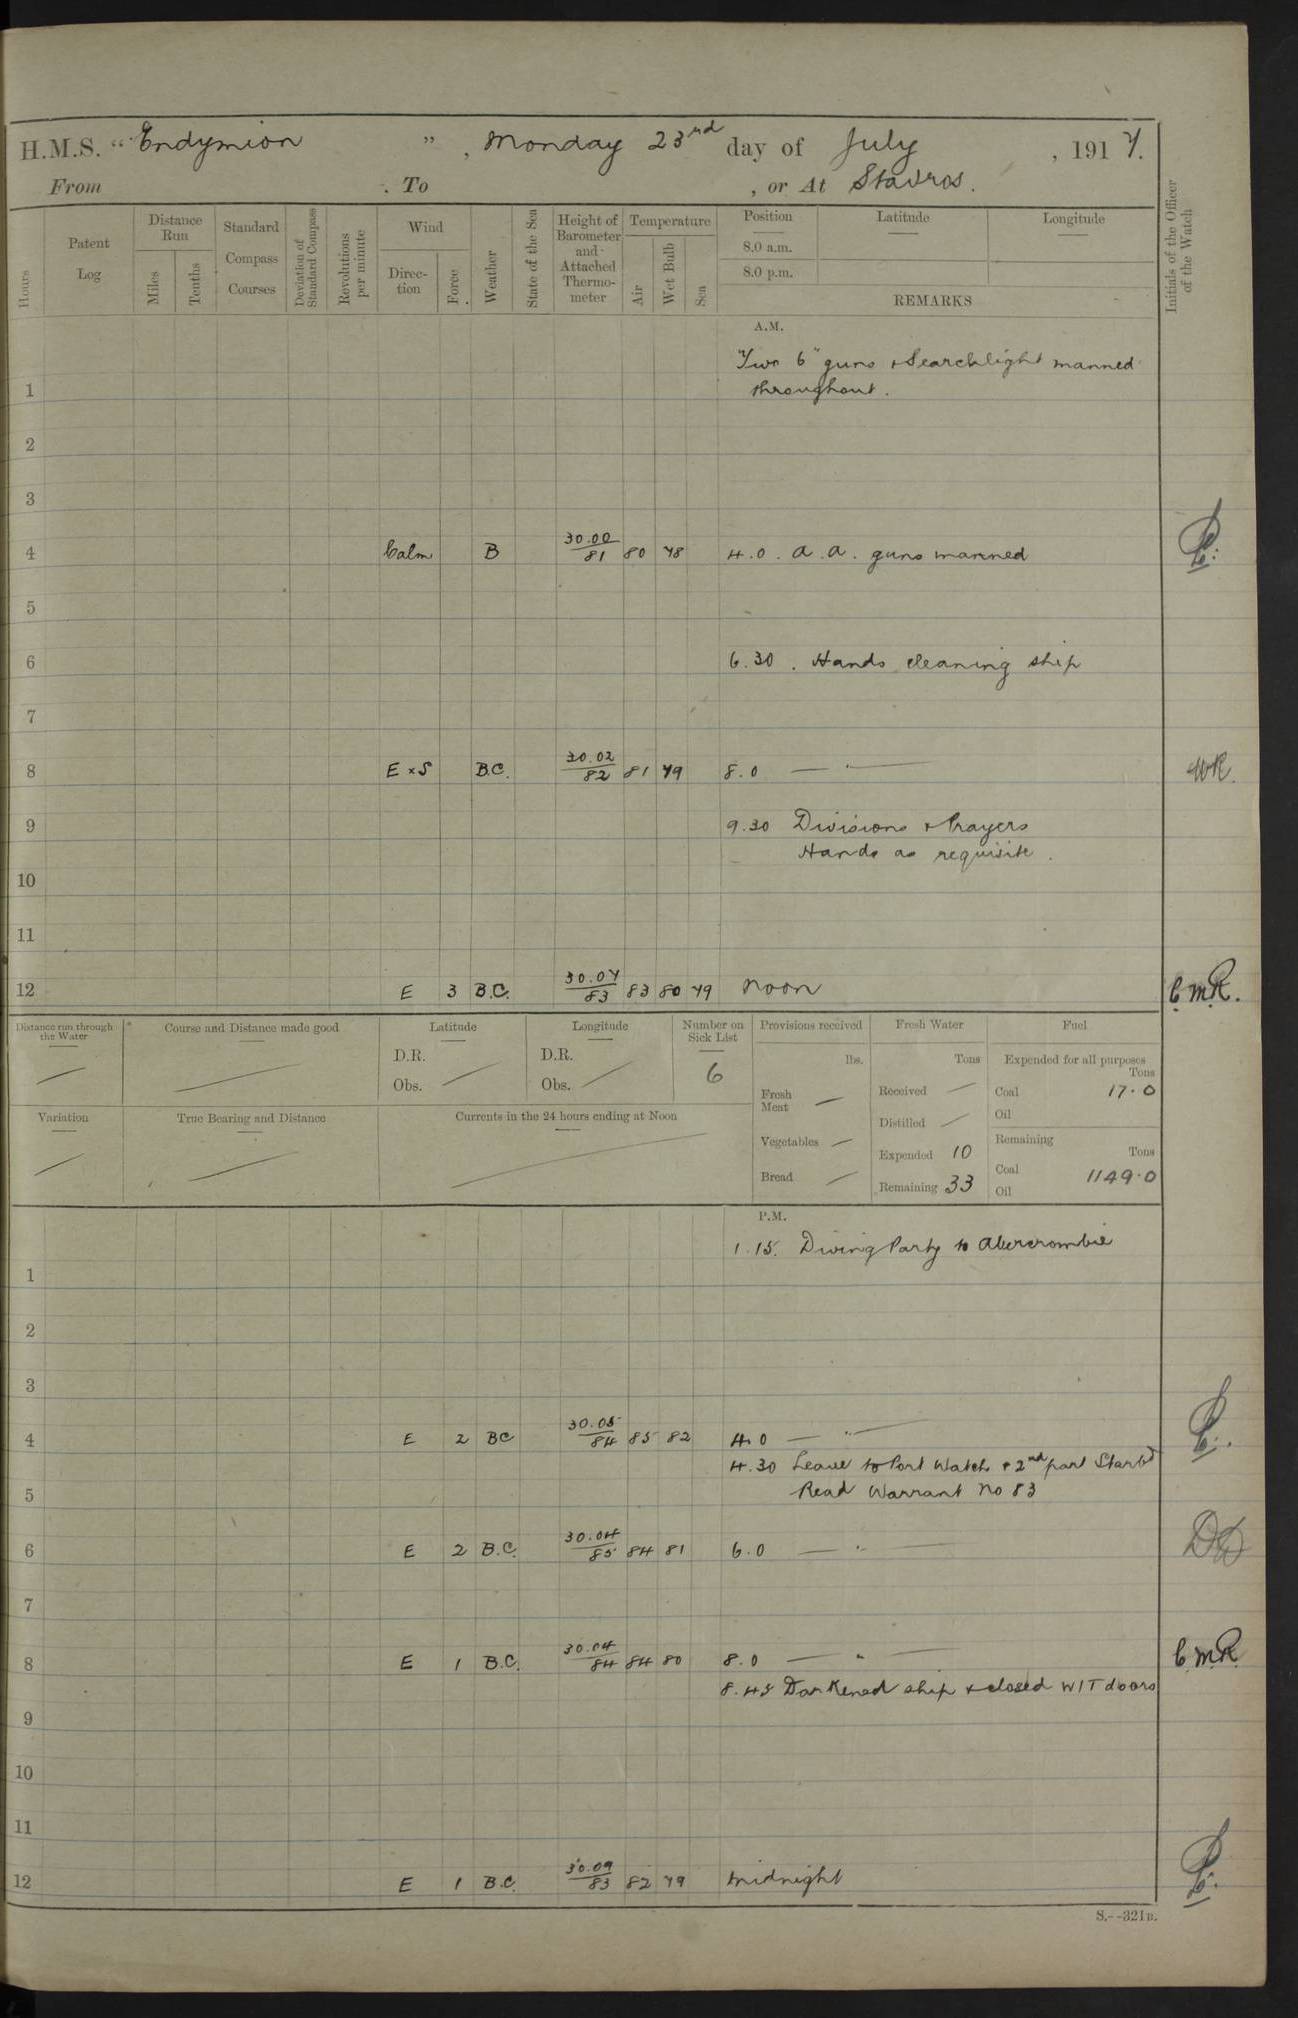 H.M.S. “ Endymion ” , Monday 23rd day of July , 1917.
From . To , or At Stavros.
Hours
Patent Log
Distance Run
Miles
Tenths
Standard Compass Courses
Deviation of Standard Compass
Revolutions per minute
Wind
Direc-tion
Force
Weather
State of the Sea
Height of Barometer and Attached Thermo-meter
Temperature
Air
Wet Bulb
Sea
Position
8.0 a.m.
8.0 p.m.
Latitude
Longitude
REMARKS
Initials of the Officer of the Watch
A.M.
Two 6" guns & Searchlight manned
1 throughout.
2
3
4 Calm B 30.00/81 80 78 4.0. A.A. guns manned
5
6 6.30. Hands cleaning ship
7
8 E x S B.C. 30.02/82 81 79 8.0 — " — WR.
9 9.30 Divisions & Prayers
Hands as requisite.
10
11
12 E 3 B.C. 30.07/83 83 80 79 Noon C.M.R.
Distance run through the Water
Course and Distance made good
Latitude
D.R.
Obs.
Longitude
D.R.
Obs.
Number on Sick List
6
Provisions received
lbs.
Fresh Meat —
Vegetables —
Bread —
Fresh Water
Tons
Received —
Distilled —
Expended 10
Remaining 33
Fuel
Expended for all purposes
Tons
Coal 17.0
Oil
Remaining
Tons
Coal 1149.0
Oil
Variation
True Bearing and Distance
Currents in the 24 hours ending at Noon
P.M.
1.15. Diving Party to Abercrombie
1
2
3
4 E 2 BC 30.05/84 85 82 4.0 — " —
4.30 Leave to Port Watch & 2nd part Starbd
5 Read Warrant No 83
6 E 2 B.C. 30.04/85 84 81 6.0 — " —
7
8 E 1 B.C. 30.04/84 84 80 8.0 — " — C.M.R.
8.45 Darkened ship & closed W/T doors
9
10
11
12 E 1 B.C. 30.09/83 82 79 Midnight
S.--321B.